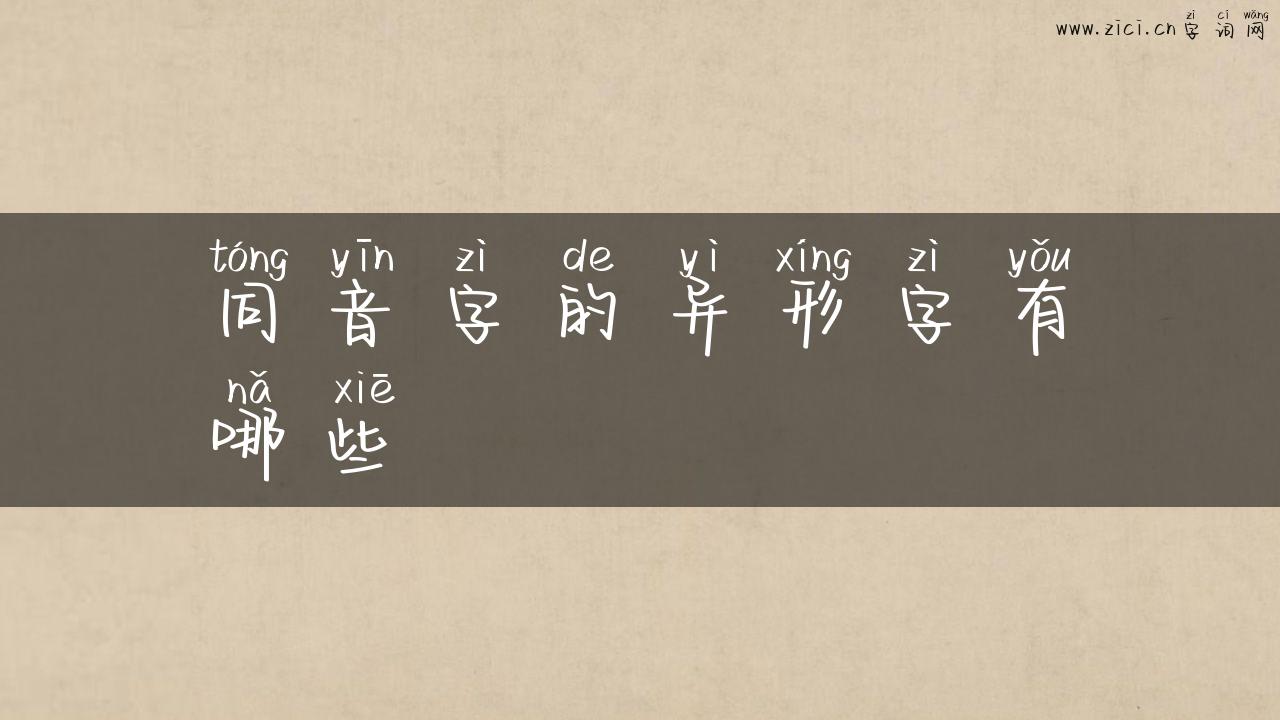 zì cí wǎng
www.zici.cn 字 词 网
tóng yīn zì de yì xíng zì yǒu
同 音 字 的 异 形 字 有
nǎ xiē
哪 些